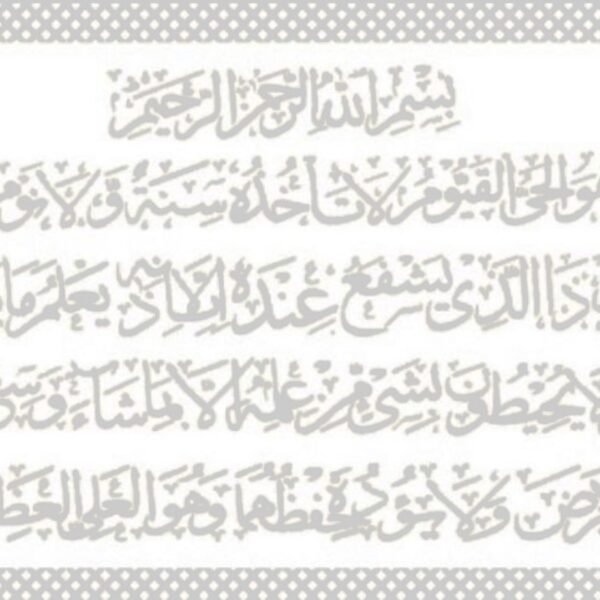 بِسْمِ اللهِ الرَّحْمٰنِ الرَّحِيمِ
هُوَ الْحَىُّ الْقَيُّومُ لَا تَأْخُذُهُ سِنَةٌ وَلَا نَوْمٌ
ذَا الَّذِى يَشْفَعُ عِنْدَهُ اِلَّا بِاِذْنِهِ يَعْلَمُ مَا
يُحِيطُونَ بِشَىْءٍ مِنْ عِلْمِهِ اِلَّا بِمَا شَاءَ
وَلَا يَؤُدُهُ حِفْظُهُمَا وَهُوَ الْعَلِىُّ